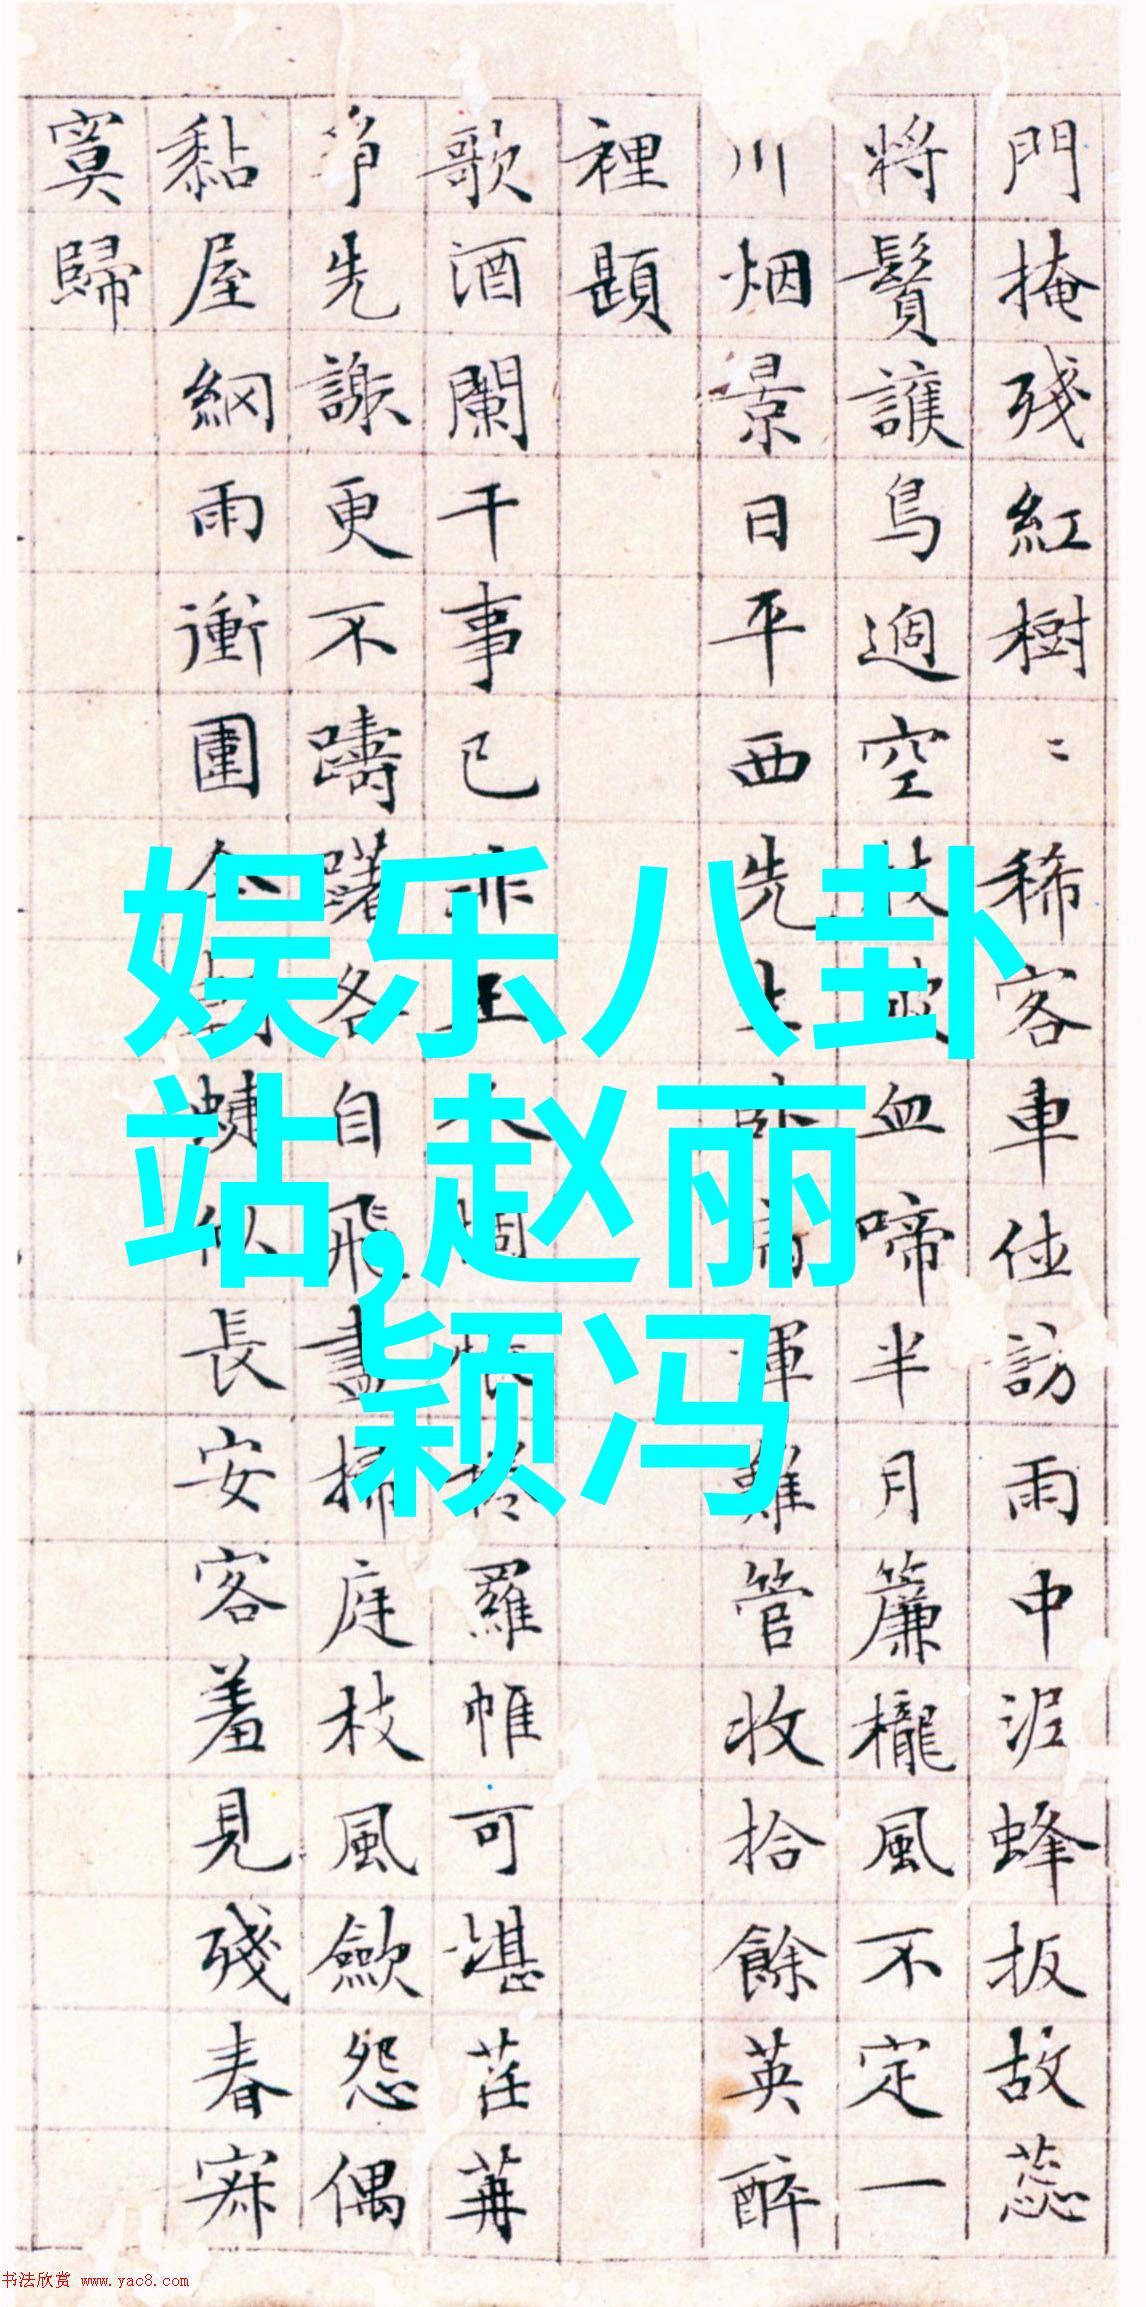 門掩殘紅樹〻稀客車佐訪雨中泥蜂扳故蕊
將鬚護鳥過空枝血啼半月簾櫳風不定一
川烟景日平西先生卧病渾難管收拾餘英醉
裡題
歌酒闌干事已非羅帷可堪茌苒
爭先謝更不躊躇各自飛盡掃庭枝風歛怨偶
黏屋網雨衝圍長安客羞見殘春寂
寞歸
娱乐八卦
站,赵丽
颖冯
书法欣赏 www.yac8.com